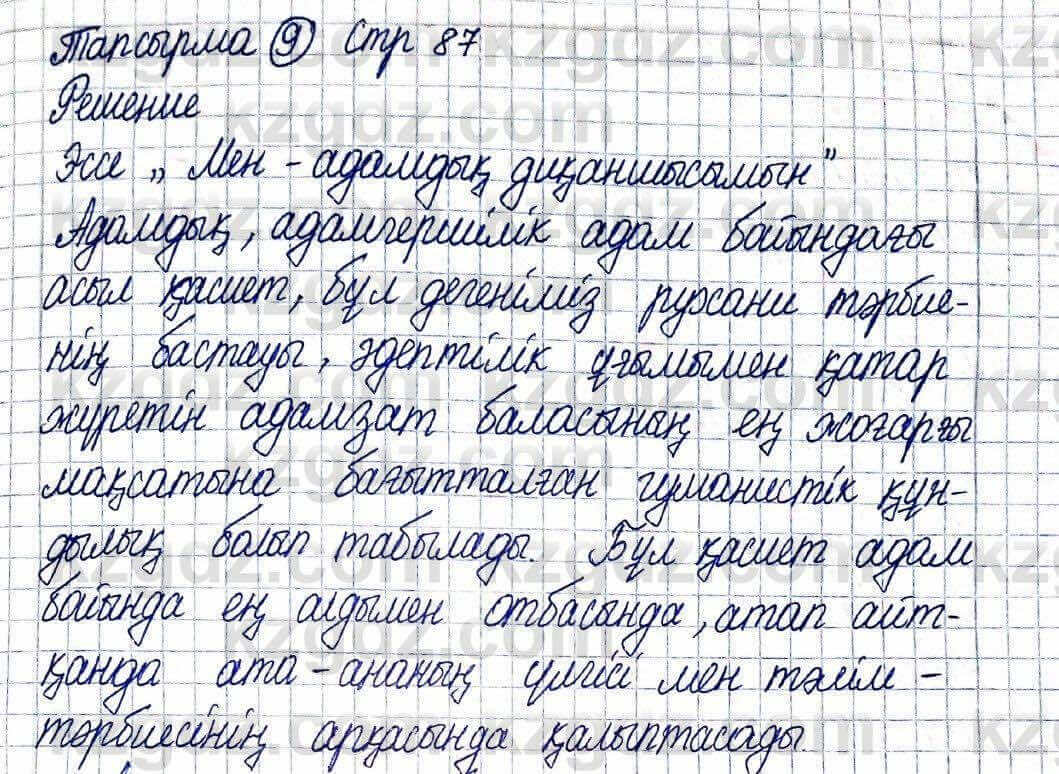 Тапсырма 9 Стр 87
Решение
Эссе „Мен - адамдық диқаншысымын"
Адамдық, адамгершілік адам бойындағы
асыл қасиет, бұл дегеніміз рухани тәрбие-
нің бастауы, әдептілік ұғымымен қатар
жүретін адамзат баласының ең жоғарғы
мақсатына бағытталған гуманистік құн-
дылық болып табылады. Бұл қасиет адам
бойында ең алдымен отбасында, атап айт-
қанда ата-ананың үлгісі мен тәлім -
тәрбиесінің арқасында қалыптасады.